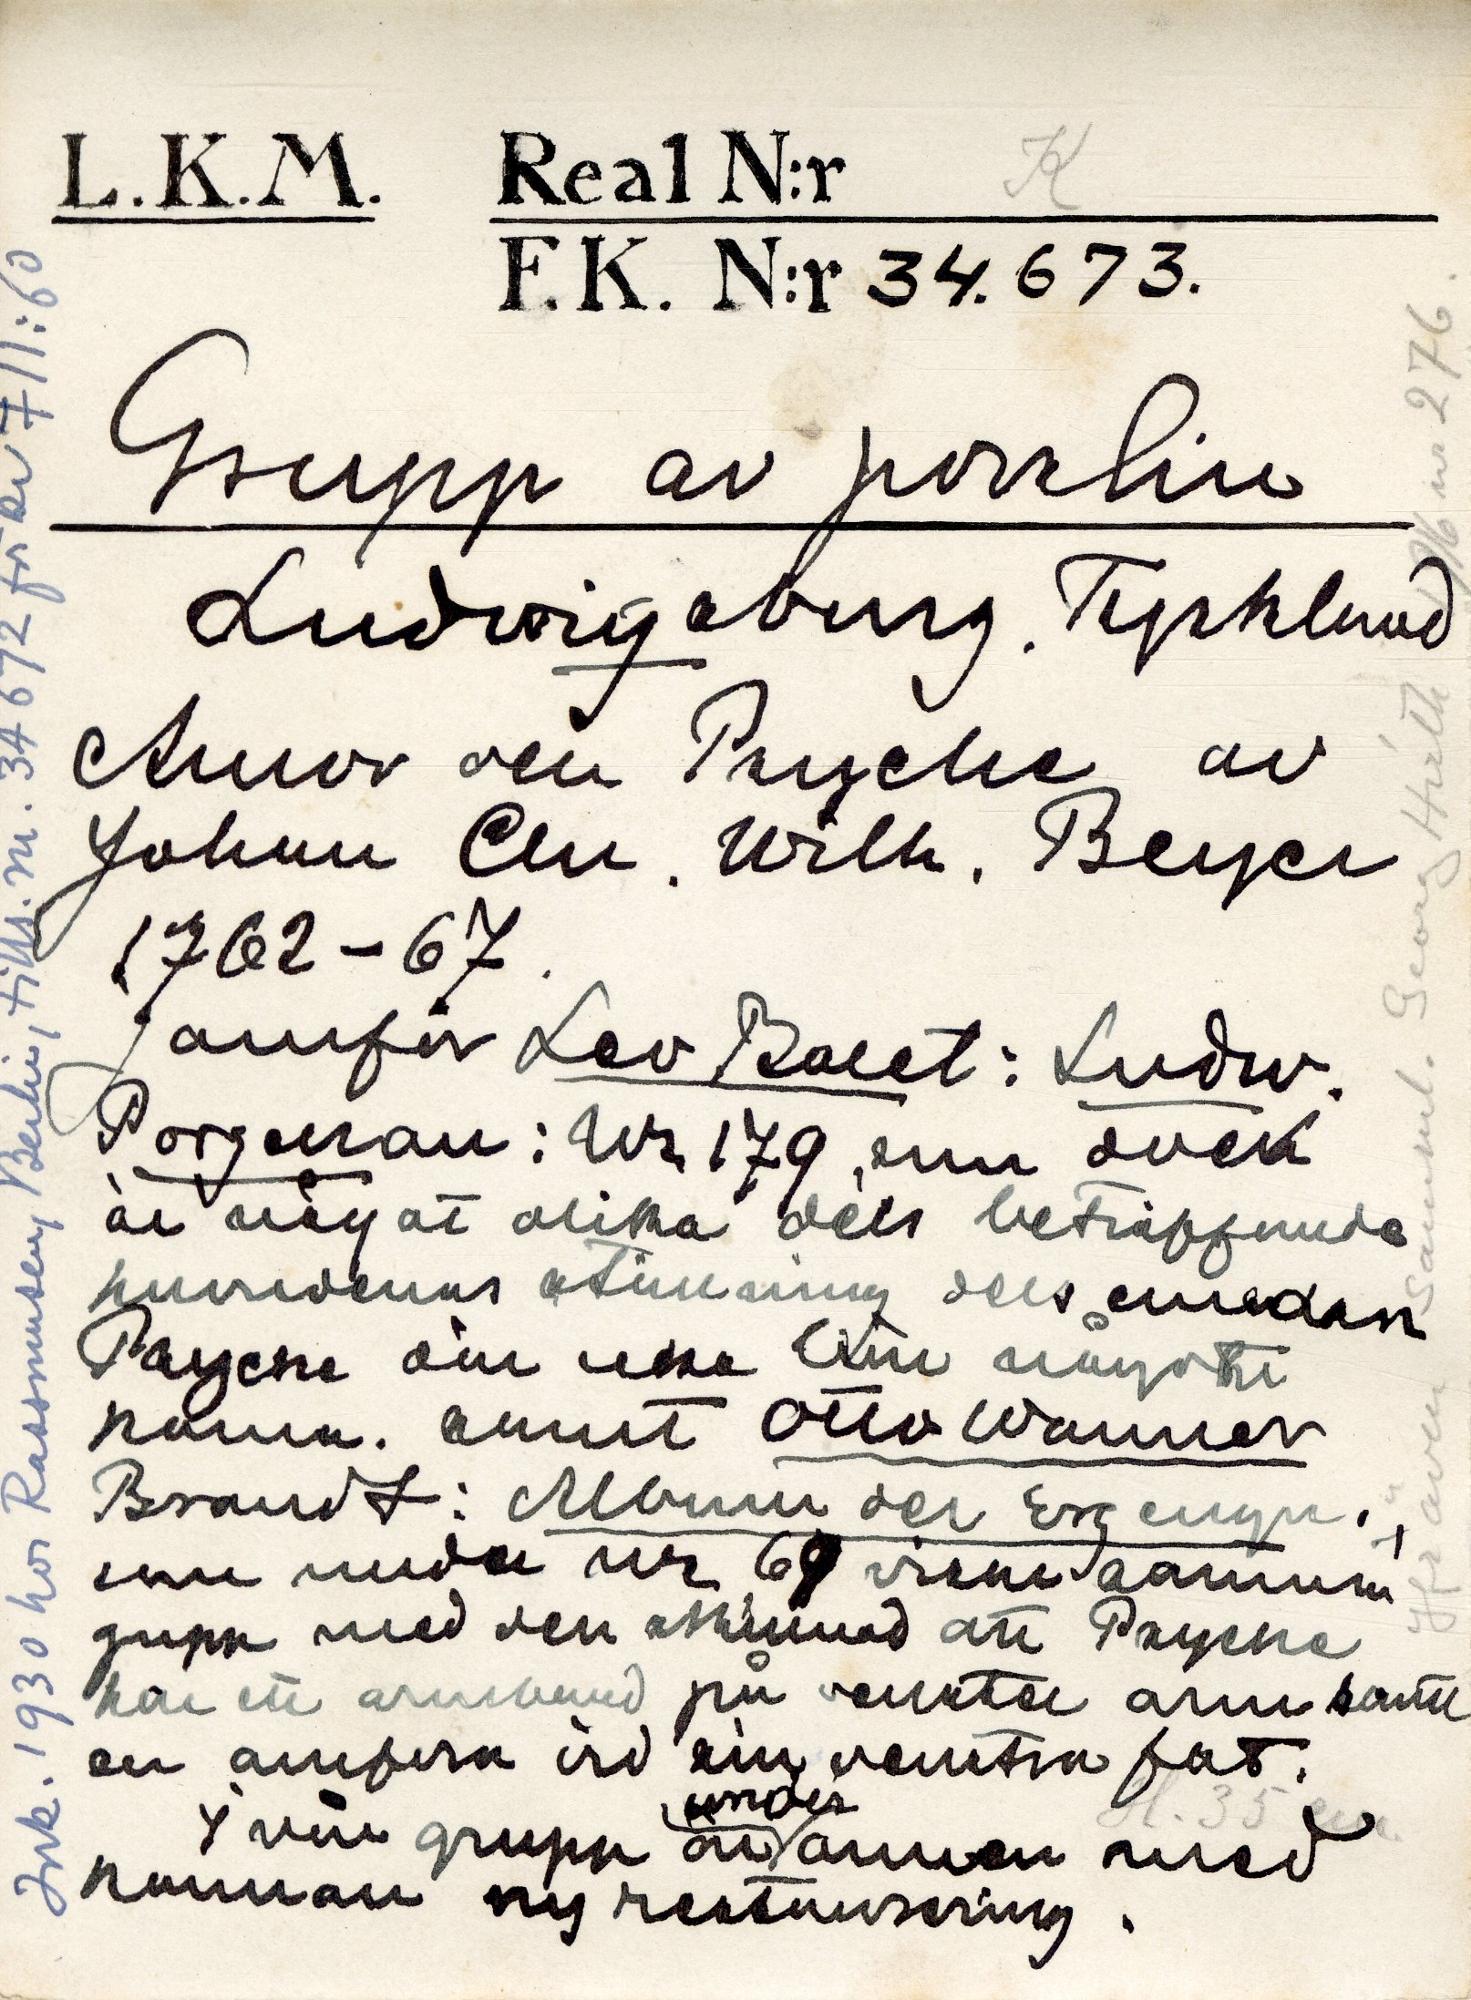 L.K.M. Real N:r K
F.K. N:r 34.673.
Grupp av porslin
Ludwigsburg. Tyskland
Amor och Psyche av
Johan Chr. Wilh. Beyer
1762-67.
Jämför Leo Balet: Ludw.
Porzellan: Nr 179, som dock
är något olika dels beträffande
huvudenas ställning dels emedan
Psyche där icke bär något
horn. samt Otto Wanner
Brandt: Album der Erzeugn.,
som under nr 69 visar samma
grupp med den skillnad att Psyche
har ett armband på venster arm samt
en amfora vid sin venstra fot.
I vår grupp är under armen med
hornan ny restaurering.
H. 35 cm.
Ink. 1930 hos Rasmussen, Berlin, tills. m. 34672 för kr 711:60
Härav även i samml. Georg Hirth nr 276.